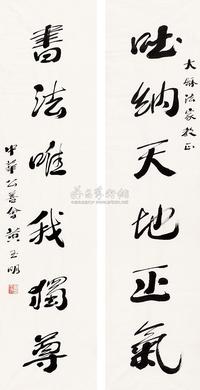 大龢法家教正
吐納天地正氣
書法唯我獨尊
中華公善會 黃玉明